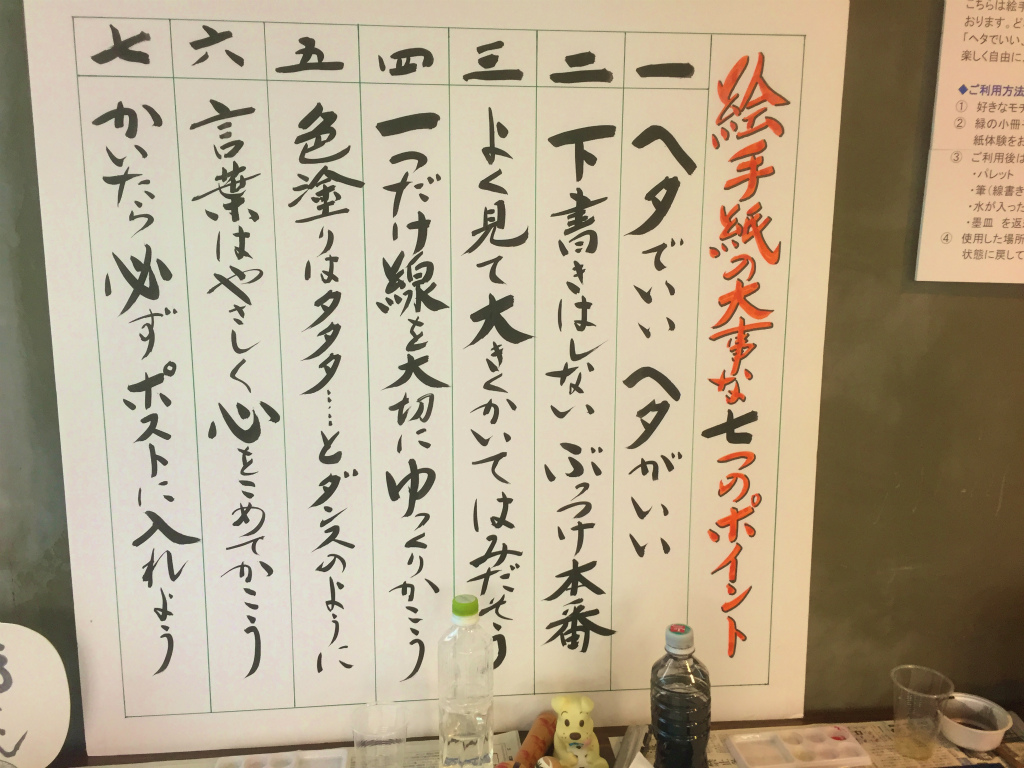 絵手紙の大事な七つのポイント
一
ヘタでいい ヘタがいい
二
下書きはしない ぶっつけ本番
三
よく見て大きくかいてはみだそう
四
一つだけ線を大切にゆっくりかこう
五
色塗りはタタタ……とダンスのように
六
言葉はやさしく心をこめてかこう
七
かいたら必ずポストに入れよう
こちらは絵手
おります。ど
「ヘタでいい」
楽しく自由に、
◆ご利用方法
① 好きなモチ
② 緑の小冊
紙体験をお
③ ご利用後は
・パレット
・筆（線書き
・水が入った
・墨皿 を返
④ 使用した場所
状態に戻して